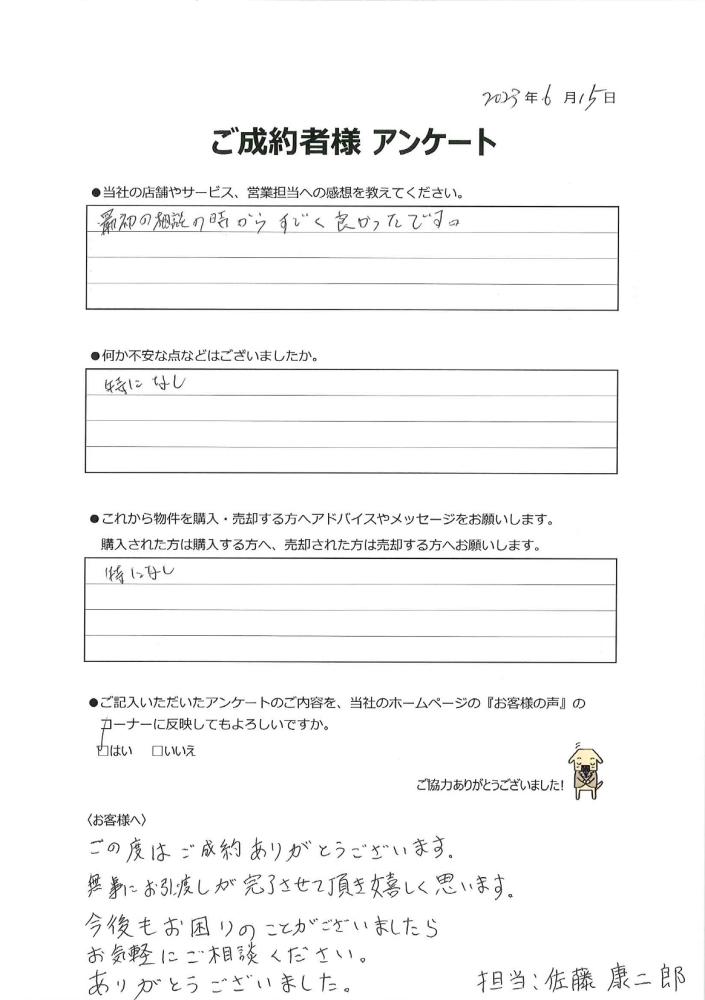 2023年6月15日
ご成約者様 アンケート
●当社の店舗やサービス、営業担当への感想を教えてください。
最初の相談の時からすごく良かったです。
●何か不安な点などはございましたか。
特になし
●これから物件を購入・売却する方へアドバイスやメッセージをお願いします。
購入された方は購入する方へ、売却された方は売却する方へお願いします。
特になし
●ご記入いただいたアンケートのご内容を、当社のホームページの『お客様の声』の
コーナーに反映してもよろしいですか。
□はい □いいえ
ご協力ありがとうございました!
〈お客様へ〉
この度はご成約ありがとうございます。
無事にお引渡しが完了させて頂き嬉しく思います。
今後もお困りのことがございましたら
お気軽にご相談ください。
ありがとうございました。 担当:佐藤 康二郎